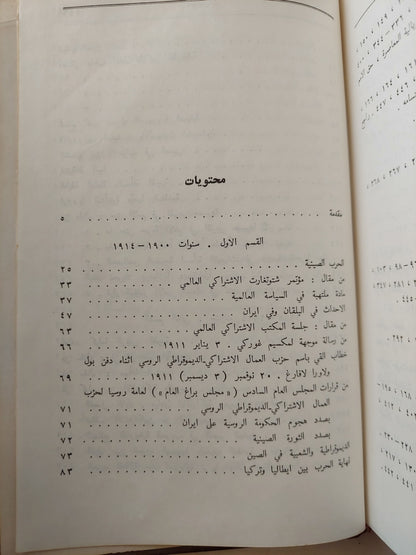 محتويات
مقدمة . . . . . . . . . . . . . . . . . . . . ٥
القسم الاول . سنوات ١٩٠٠ – ١٩١٤
الحرب الصينية . . . . . . . . . . . . . . . . . ٢٥
من مقال : مؤتمر شتوتغارت الاشتراكي العالمي . . . . . . ٣٣
مادة ملتهبة في السياسة العالمية . . . . . . . . . . ٣٧
الاحداث في البلقان وفي ايران . . . . . . . . . . . ٤٧
من مقال : جلسة المكتب الاشتراكي العالمي . . . . . . . ٦٣
من رسالة موجهة لمكسيم غوركي . ٣ يناير ١٩١١ . . . . . ٦٦
خطاب القي باسم حزب العمال الاشتراكي-الديموقراطي الروسي اثناء دفن بول
ولاورا لافارغ . ٢٠ نوفمبر ( ٣ ديسمبر ) ١٩١١ . . . . . ٦٩
من قرارات المجلس العام السادس ( « مجلس براغ العام » ) لعامة روسيا لحزب
العمال الاشتراكي-الديموقراطي الروسي . . . . . . . . ٧١
بصدد هجوم الحكومة الروسية على ايران . . . . . . . ٧١
بصدد الثورة الصينية . . . . . . . . . . . . . ٧٢
الديموقراطية والشعبية في الصين . . . . . . . . . . ٧٣
نهاية الحرب بين ايطاليا وتركيا . . . . . . . . . . ٨٣